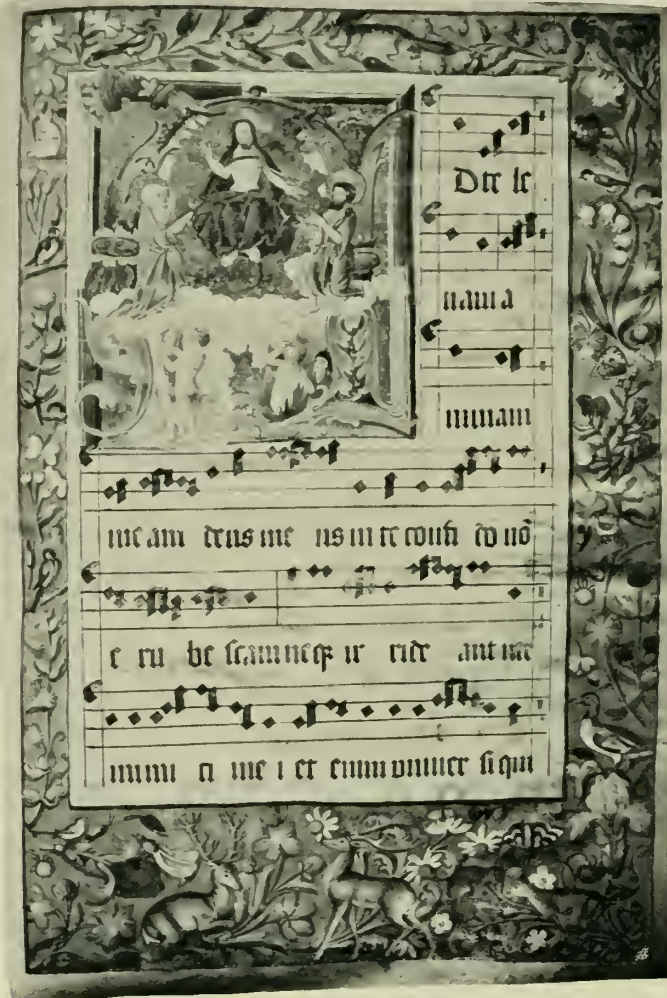 D te le
uaui a
nimam
me am deus me us in te confi do nō
e ru be scam neqȝ ir ride ant me
inimi ci me i et enim vniuer si qui